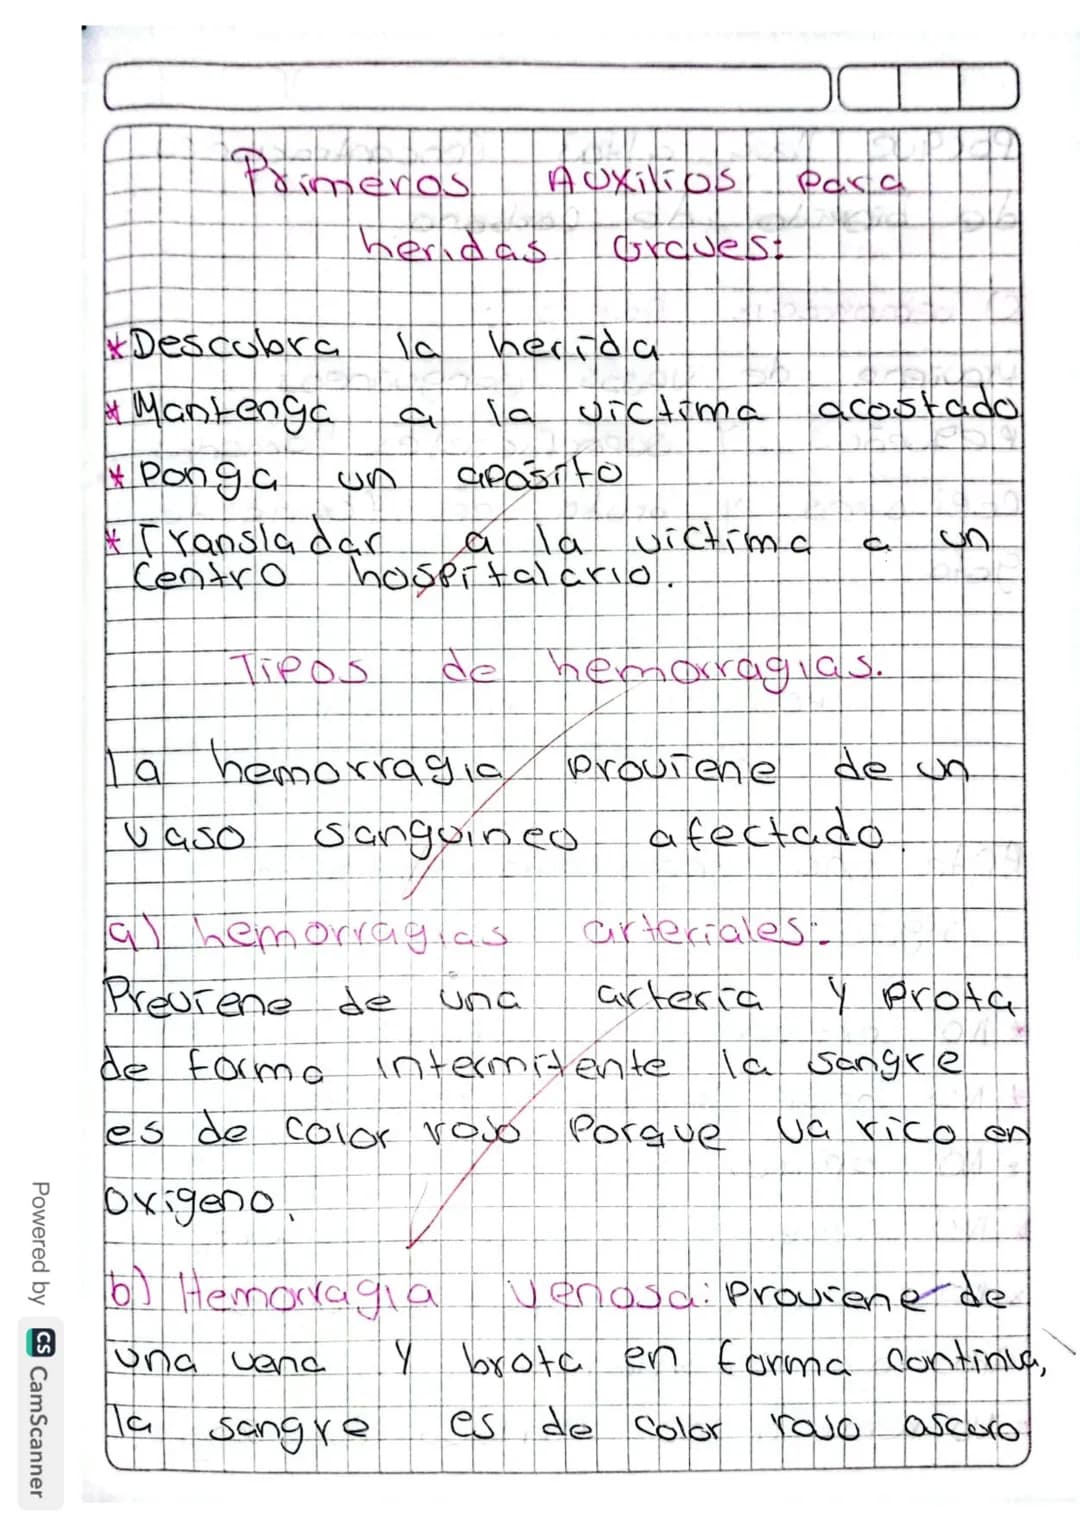 Primeros Auxilios Para
heridas Graves:
*Descubra la herida
*Mantenga a la victima acostado
*Ponga un aposito
*Transladar a la victima a un
Centro hospitalario.
Tipos de hemorragias.
La hemorragia proviene de un
vaso sanguineo afectado.
a) hemorragias arteriales:
Previene de una arteria y prota
de forma intermitente la sangre
es de color rojo Porque va rico en
oxigeno.
b) Hemorragia venosa: Proviene de
una vena y brota en forma continua,
la sangre es de color rojo oscuro
Powered by CS CamScanner